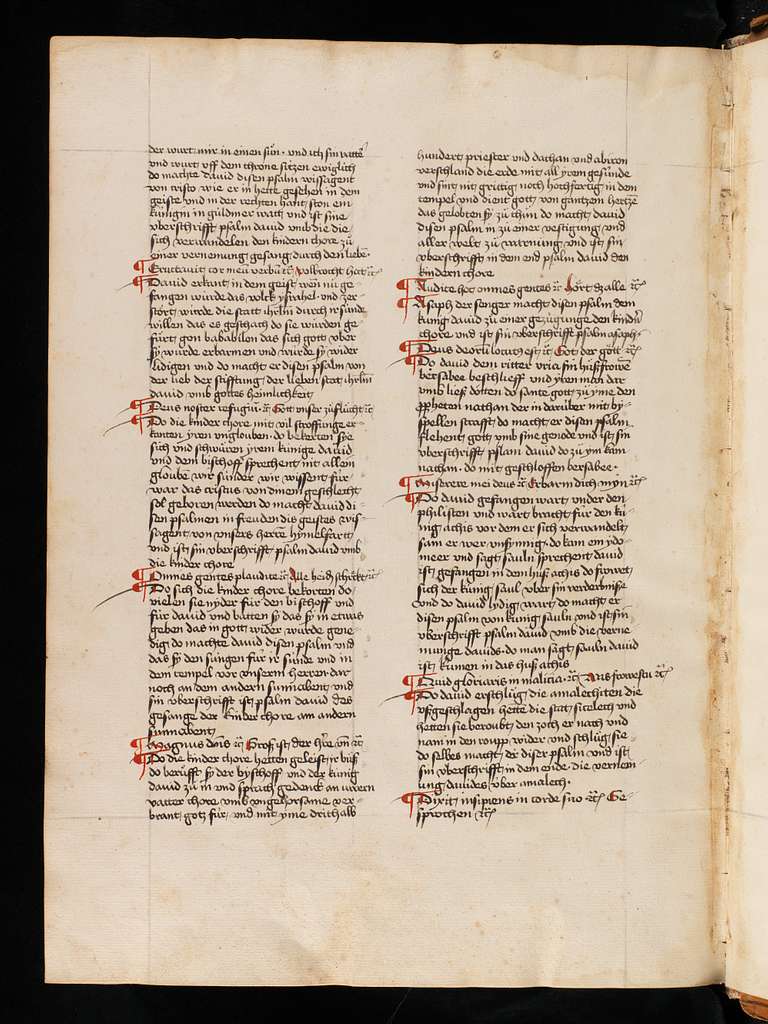 der wurt mir in einen sun · und ich sin vatter
und wurt uff dem throne sitzen ewiglich
do machte david disen psalm wissagent
von cristo wie er in hette gesehen in dem
geiste und in der rechten hant ston ein
kúnigin in gúldiner watt und ist sine
úberschrifft psalm david umb die die
sich verwandelen den kindern chore zů
einer vernemung gesang durch den liebe
Eructavit cor meú verbú ⁊c̄ volbrocht hat ⁊c̄
David erkant in dem geist wen nu ge-
fangen wurde das volck ysrahel · und zer-
stórt wúrde die statt ihrlm durch ir súnde
willen das es geschach do sie wúrden ge-
fúrt gon babilon das sich gott úber
sy wurde erbarmen und wurde sy wider
lidigen und do macht er disen psalm von
der lieb der stifftung der lieben stat ihrlm
david umb gottes heimlichkeit
Deus noster refugiú ⁊c̄ Gott unser zúflúcht ⁊c̄
Do die kinder chore mit vil stroffunge er-
kanten yren unglouben · do bekerten sye
sich und schwúren yrem kúnige david
und dem bischoff sprechent mit allem
gloube wir súnder wir wissent fúr
war das cristus von dinem geschlecht
sol geboren werden do macht david di-
sen psalmen in freuden dis geistes wis-
sagent von unsers herrē hymelfartt
und ist sin úberschrifft psalm david umb
die kinder chore
Omnes gentes plaudite ⁊c̄ Alle heiden schrecket ⁊c̄
Do sich die kinder chore bekorten do
vielen sie nyder fúr den bischoff und
fúr david und batten sy das sy in etwas
geben das in gott wider wúrde gene-
dig do machte david disen psalm und
das sy den sungen fúr ir súnde und in
dem tempel vor unserm herren dar
noch an dem andern sunnabent und
sin úberschrifft ist psalm david des
gesange der kinder chore am andern
sunnabent
Magnus dn̄s ⁊c̄ Groß ist der hr̄e un ⁊c̄
Do die kinder chore hetten geleist ir bús
do berúfft sy der byschoff und der kúnig
david zu in und sprach gedenck an úweren
vatter chore umb ungehorsame ver-
brant gotz fúr und mit yme drithalb
hundert priester und dathan und abiron
verschland die erde mit all yrem gesúnde
und sint nit grittig noch hochfertig in dem
tempel und dient gott von gantzem hertze
das gelobten sy zů thún do macht david
disen psalm in zú einer vestigung und
aller welt zů warnung und ist sin
úberschrifft in dem end psalm david den
kindern chore
Audite hec omnes gentes ⁊c̄ Hórt dz alle ⁊c̄
Asaph der senger macht disen psalm dem
kúnig david zú einer gezúgunge den kindn̄
chore und ist sin úberschrifft psalm asaph
Deus deorú locutꝰ est ⁊c̄ Got der gótt ⁊c̄
Do david dem ritter uria sin husfrowe
bersabee beschlieff und yren man dar
umb ließ dótten do sante gott zú yme den
ꝓpheten nathan der in darúber mit by-
spellen strafft do macht er disen psalm
flehent gott umb sine genode und ist sin
úberschrifft pslam david do zú ym kam
nathan · do mit geschloffen bersabee ·
Miserere mei deus ⁊c̄ Erbarm dich myn ⁊c̄
Do david gefangen wart under den
philisten und wart bracht fúr den kú-
nig achis vor dem er sich verwandelt
sam er wer unsinnig · do kam ein ydo-
meer und sagt sauln sprechent david
ist gefangen in dem huß achis do frowet
sich der kúnig saul úber sin verderbniße
und do david lydig wart do macht er
disen psalm von kúnig sauln und ist sin
úberschrifft psalm david umb die verne-
munge davids · do man sagt sauln david
ist kumen in das huß achis
Quid gloriaris in malicia ⁊c̄ Was frowestu ⁊c̄
Do david erschlúg die amalechiten die
ußgeschlagen hette die stat sicelech und
hetten sie beroubt den zoch er nach und
nam in den roupp wider und schlúg sie
do selbes macht der diser psalm und ist
sin úberschrifft in dem ende die vernem-
ung davides úber amalech ·
Dixit insipiens in corde suo ⁊c̄ Ge-
sprochen ⁊c̄